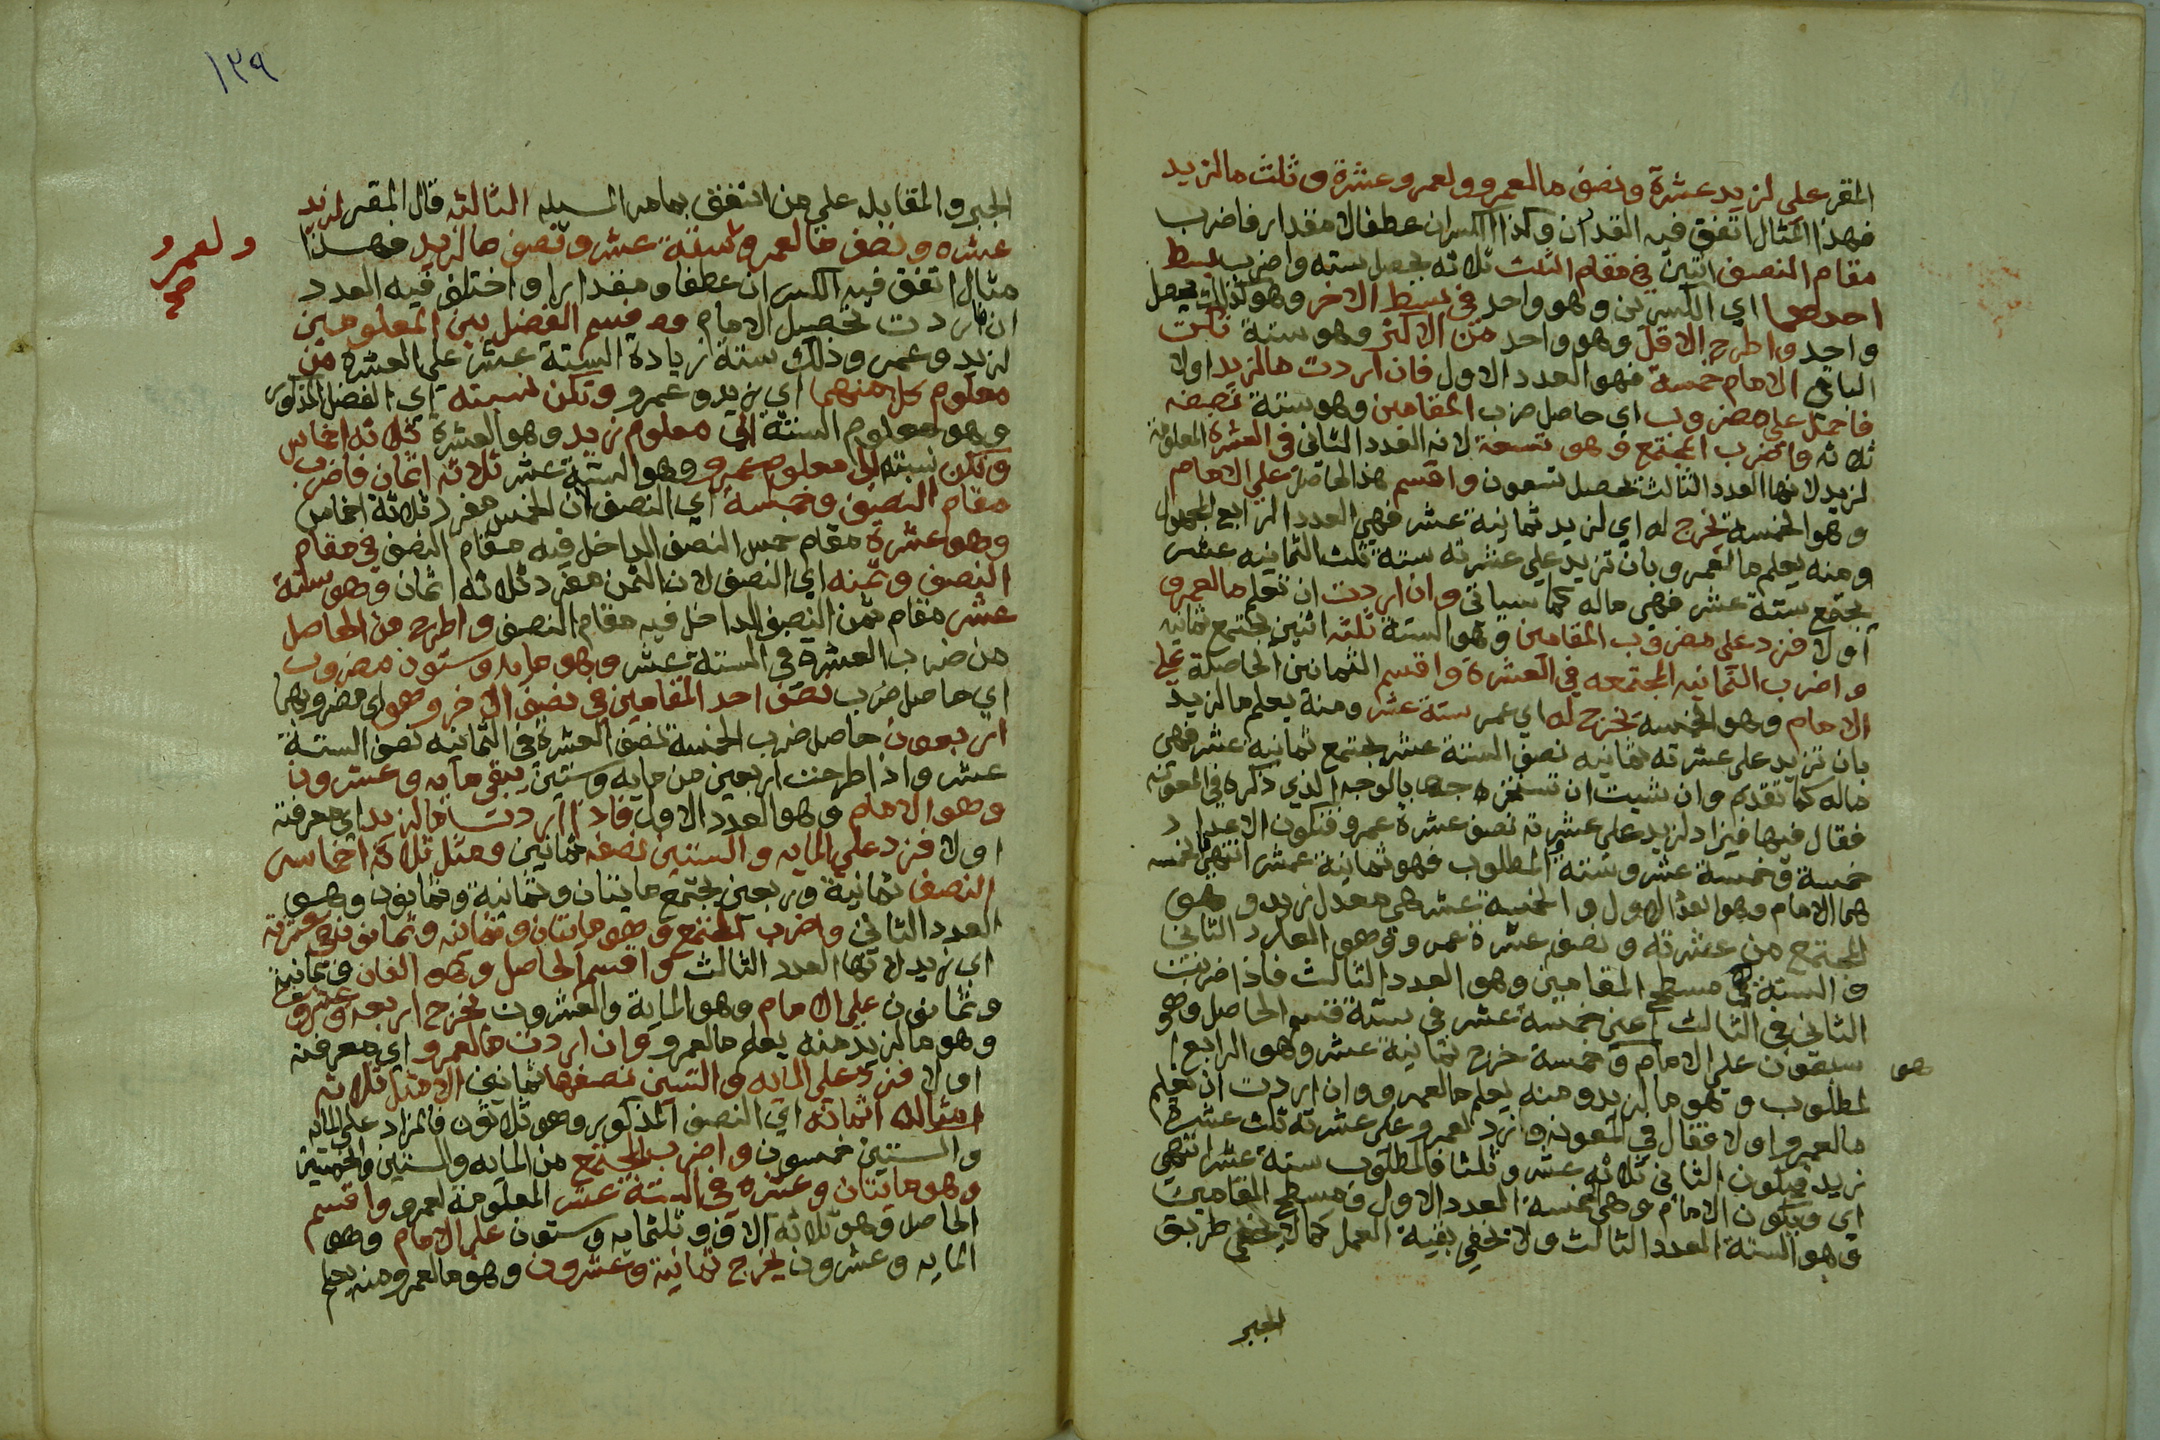 المقر علي لزيد عشرة ونصف مالعمرو ولعمرو عشرة وثلث مالزيد
فهذا المثال اتفق فيه القدران وكذا الكسران عطفا لا مقدارا فاضرب
مقام النصف اثنين في مقام الثلث ثلاثه يحصل سته واضرب بسط
احدهما اي الكسرين وهو واحد في بسط الاخر وهو كذلك يحصل
واحد واطرح الاقل وهو واحد من الاكثر وهو ستة تكن
الباقي الامام خمسة فهو العدد الاول فان اردت مالزيد اولا
فاحمل علي مضروب اي حاصل ضرب المقامين وهو ستة نصفه
ثلاثه واضرب المجتمع وهو تسعة لانه العدد الثاني في العشرة المعلومة
لزيد لانها العدد الثالث يحصل تسعون واقسم هذا الحاصل علي الامام
وهو الخمسة يخرج له اي لزيد ثمانية عشر فهي العدد الرابع المجهول
ومنه يعلم مالعمرو بان تزيد علي عشرته ستة ثلث الثمانيه عشر
يجتمع ستة عشر فهي ماله كما سياتي وان اردت ان تعلم مالعمرو
اولا فزد علي مضروب المقامين وهو الستة ثلثه اثنين يجتمع ثمانيه
واضرب الثمانيه المجتمعه في العشرة واقسم الثمانين الحاصلة علي
الامام وهو الخمسة يخرج له اي عمر ستة عشر ومنه يعلم مالزيد
بان تزيد علي عشرته ثمانيه نصف الستة عشر يجتمع ثمانية عشر فهي
ماله كما تقدم وان شيت ان تستخرجه بالوجه الذي ذكره في المعونه
فقال فيها فيزاد لزيد علي عشرته نصف عشرة عمرو فتكون الاعداد
خمسة وخمسة عشر وستة والمطلوب فهو ثمانية عشر انتهي فالخمسه
هما الامام وهو العدد الاول والخمسة عشر هي معدل زيد وهو
المجتمع من عشرته ونصف عشرة عمرو وهو العدد الثاني
والستة هي مسطح المقامين وهو العدد الثالث فاذا ضربت
الثاني في الثالث اعني خمسة عشر في ستة قسم الحاصل وهو
هو
تسعون علي الامام وخمسة خرج ثمانية عشر وهو الرابع
المطلوب وهو مالزيد ومنه يعلم مالعمرو وان اردت ان تعلم
مالعمرو اولا فقال في المعونه وازد لعمرو علي عشرته ثلث عشرة
زيد فيكون الثاني ثلاثه عشر وثلثا فالمطلوب ستة عشر انتهي
اي ويكون الامام هي خمسة العدد الاول ومسطح المقامين
وهو الستة العدد الثالث ولا تخفي بقية العمل كما لا يخفي طريق
الجبر
١٣٩
الجبر والمقابله علي من اتقفق بمامر المسيله الثالثه قال المقر لزيد
عشره ونصف مالعمرو ستة عشر ونصف مالزيد فهذا
ولعمرو
صح
مثال اتفق فيه الكسران عطفا ومقدارا واختلف فيه العدد
ان اردت تحصيل الامام فاقسم الفضل بين المعلومين
لزيد وعمر وذلك ستة زيادة الستة عشر علي العشرة من
معلوم كل منهما اي زيد وعمرو وتكن نسبته اي الفضل المذكور
وهو معلوم الستة الي معلوم زيد وهو العشرة ثلاثه اخماس
وتكن نسبته الي معلوم عمرو وهو الستة عشر ثلاثه اثمان فاضرب
مقام النصف وخمسه اي النصف لان الخمس مفرد ثلاثة اخماس
وهو عشرة مقام خمس النصف الداخل فيه مقام النصف في مقام
النصف وثمنه اي النصف لان الثمن مفرد ثلاثه اثمان وهو ستة
عشر مقام ثمن النصف الداخل فيه مقام النصف واطرح من الحاصل
من ضرب العشرة في الستة عشر وهو مايه وستون مضروب
اي حاصل ضرب نصف احد المقامين في نصف الاخر وهو اي مضروبهما
اربعون حاصل ضرب الخمسة نصف العشرة في الثمانيه نصف الستة
عشر واذا طرحت اربعين من مايه وستين يبقي مايه وعشرون
وهو الامام وهو العدد الاول فاذا اردت مالزيد اي معرفته
اولا فزد علي المايه والستين نصفه ثمانين ومثل ثلاثة اخماس
النصف ثمانية واربعين يجتمع مايتان وثمانية وثمانون وهو
العدد الثاني واضرب المجتمع وهو مايتان وثمانيه وثمانون في عشرته
اي زيد لانها العدد الثالث واقسم الحاصل وهو الفان وثمانية
وثمانون علي الامام وهو الماية والعشرون يخرج اربعه وعشرون
وهو مالزيد منه يعلم مالعمرو وان اردت مالعمرو اي معرفته
اولا فزد علي المايه والستين نصفها ثمانين الا مثل ثلاثه
امثاله اثمانه اي النصف المذكور وهو ثلاثون فالمزاد علي المايه
والستين خمسون واضرب المجتمع من المايه والستين والخمسين
وهو مايتان وعشرة في الستة عشر المعلومة لعمرو واقسم
الحاصل وهو ثلاثه الاف وثلثمايه وستون علي الامام وهو
المايه وعشرون يخرج ثمانية وعشرون وهو مالعمرو ومنه يعلم